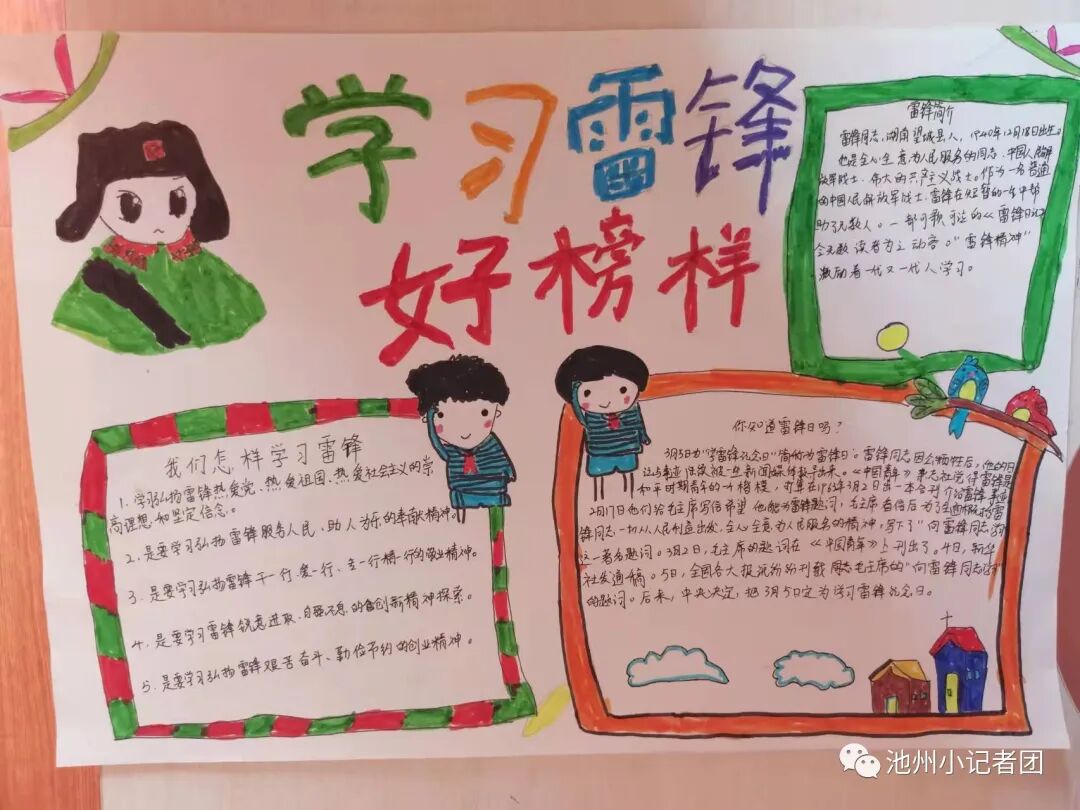 学习雷锋
好榜样
雷锋简介
雷锋同志,湖南望城县人,1940年12月18日出生。
也是全心全意为人民服务的同志,中国人民解
放军战士,伟大的共产主义战士。作为一名普通
的中国人民解放军战士,雷锋在短暂的一生中帮
助了无数人。一部可歌可泣的《雷锋日记》
令无数读者为之动容。"雷锋精神"
激励着一代又一代人学习。
我们怎样学习雷锋
1.学习弘扬雷锋热爱党、热爱祖国、热爱社会主义的崇
高理想和坚定信念。
2.是要学习弘扬雷锋服务人民、助人为乐的奉献精神。
3.是要学习弘扬雷锋干一行爱一行、专一行精一行的敬业精神。
4.是要学习雷锋锐意进取、自强不息的创新精神探索。
5.是要学习弘扬雷锋艰苦奋斗、勤俭节约的创业精神。
你知道雷锋日吗?
3月5日为"学雷锋纪念日"简称为雷锋日。雷锋同志因公牺牲后,他的日
记与事业陆续被一些新闻媒体
《中国青年》杂志社觉得雷锋是
和平时期青年的
2月17日他们给毛主席写信希望他能为雷锋题词,毛主席看信后为了
雷锋同志一切从人民利益出发,全心全意为人民服务的精神,写下了"向雷锋同志学习"
这一著名题词。3月2日,毛主席的题词在《中国青年》上刊出了。4日,新华
社发通稿。5日,全国各大报纸纷纷刊载同志毛主席的"向雷锋同志学习"
的题词。后来,中央决定,把3月5日定为学习雷锋纪念日。
池州小记者团